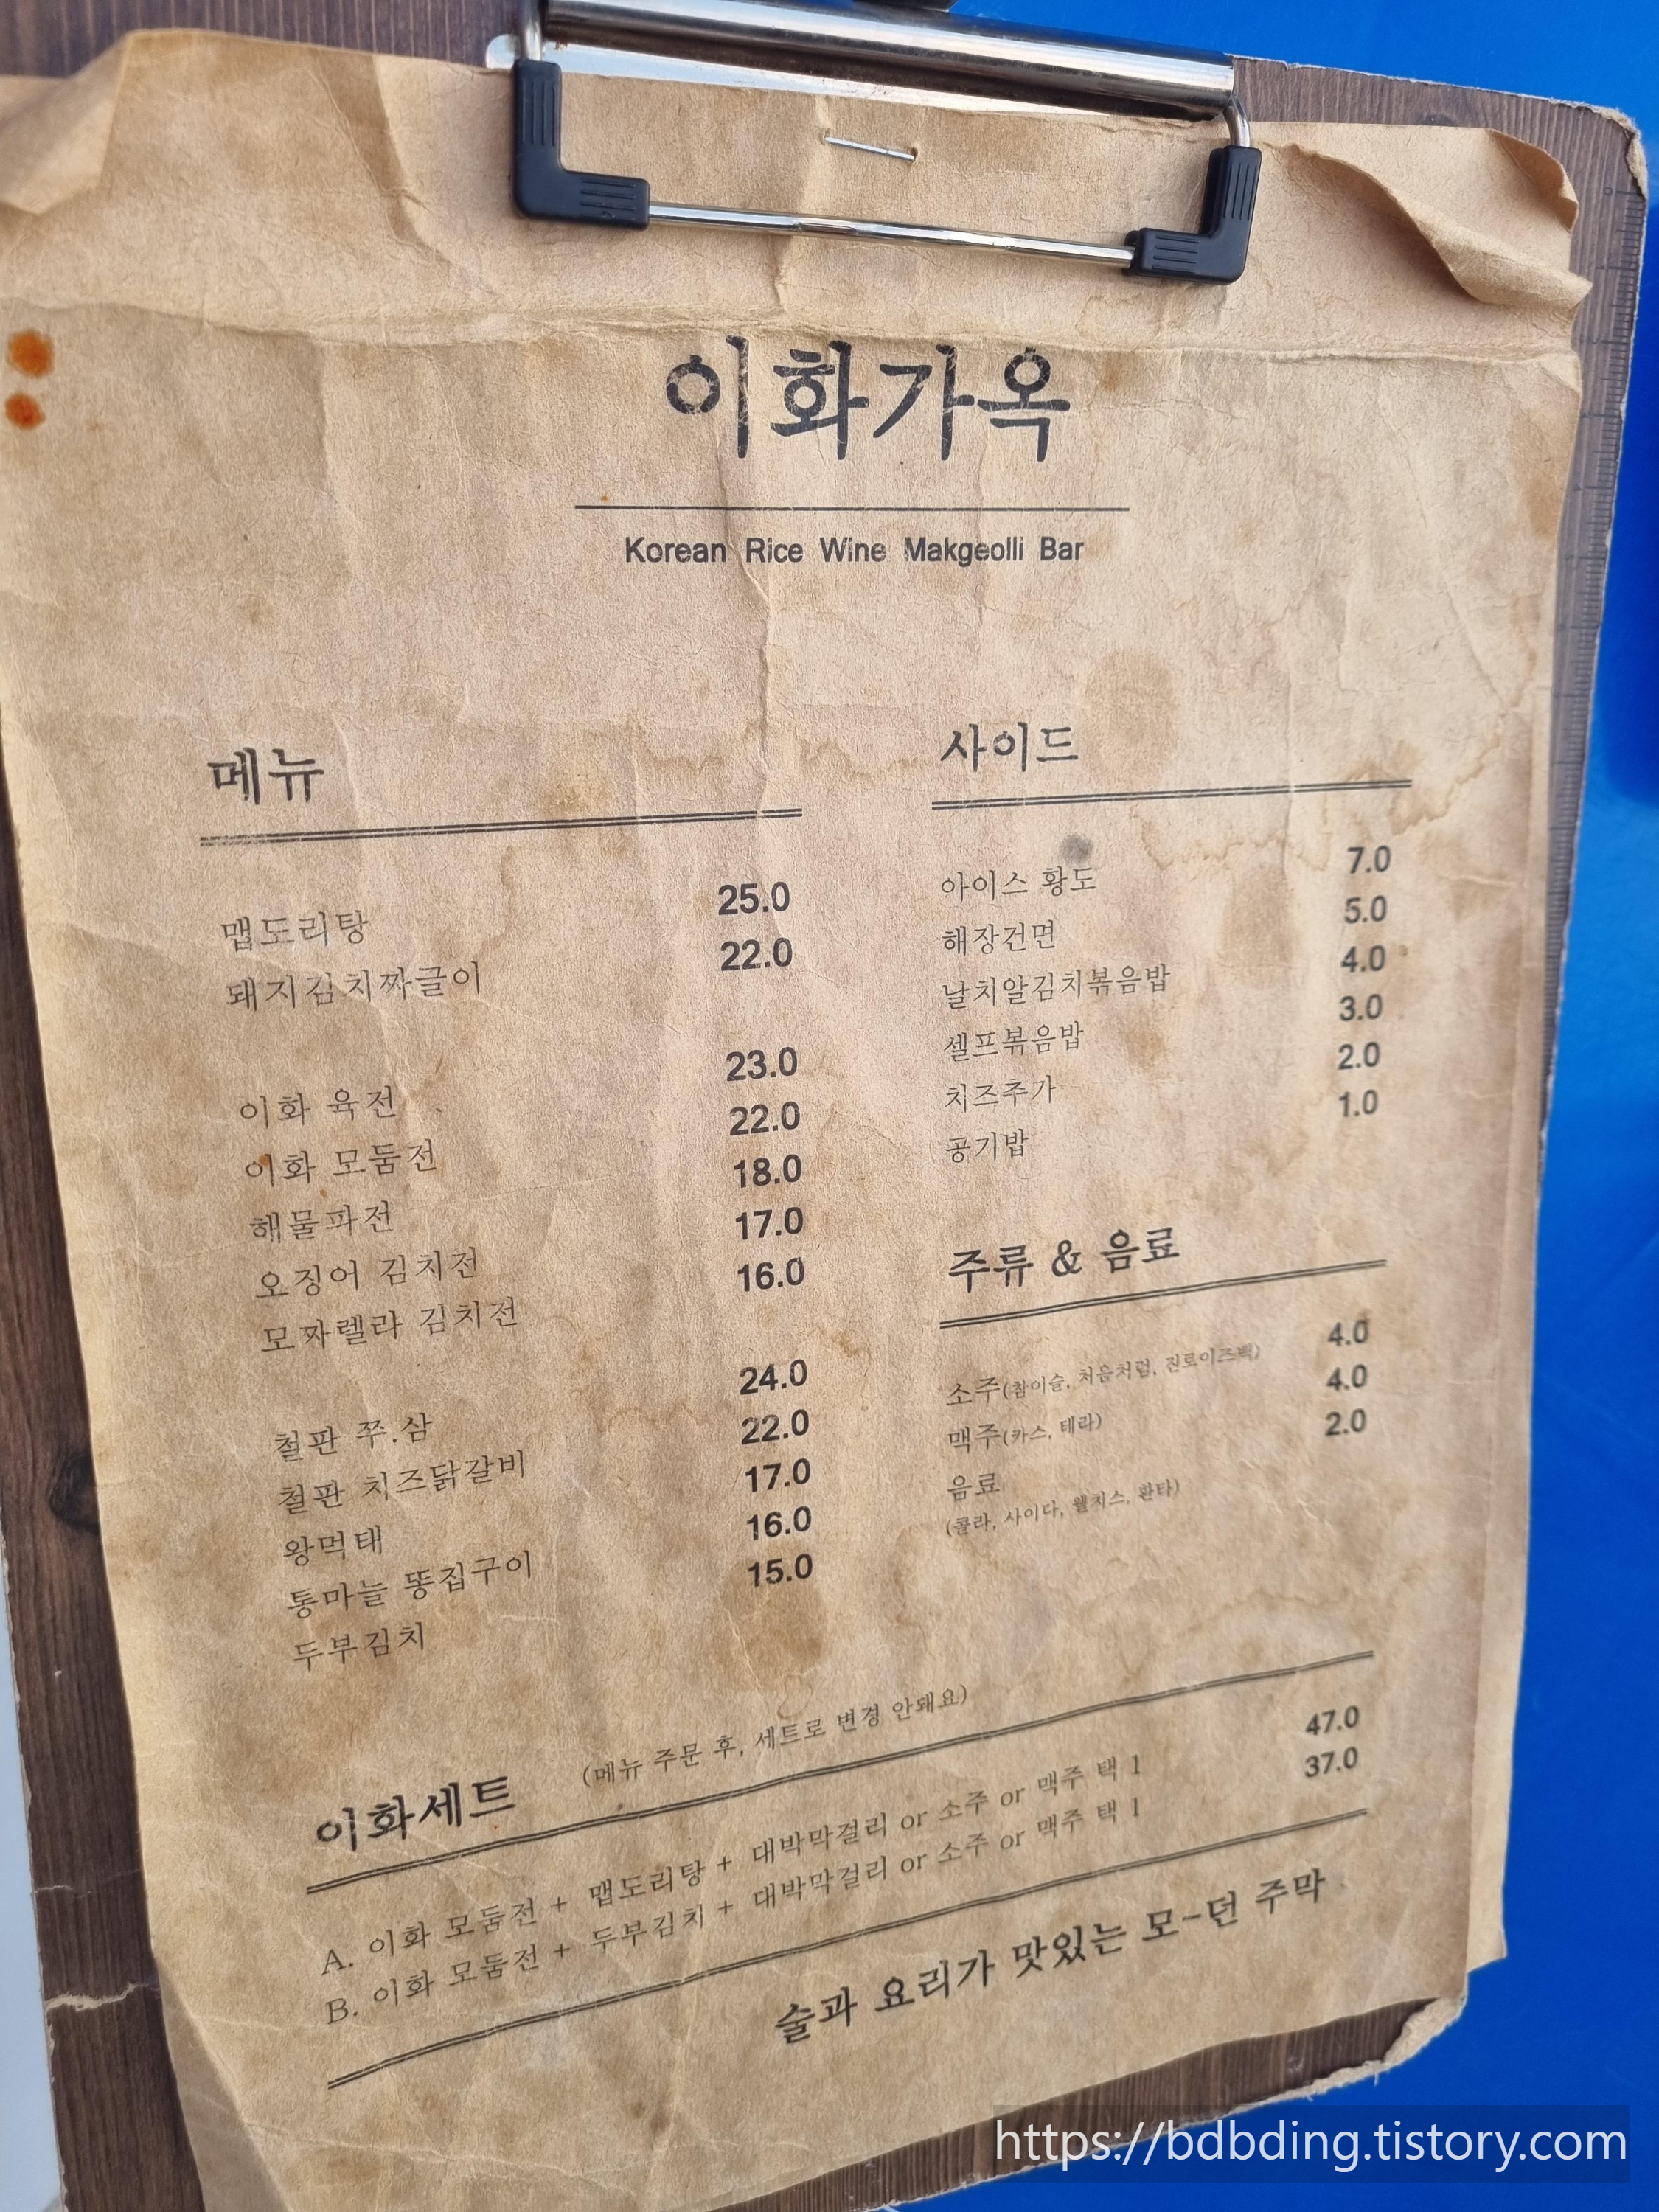 이화가옥
Korean Rice Wine Makgeolli Bar
메뉴
맵도리탕 25.0
돼지김치짜글이 22.0
이화 육전 23.0
이화 모둠전 22.0
해물파전 18.0
오징어 김치전 17.0
모짜렐라 김치전 16.0
철판 쭈.삼 24.0
철판 치즈닭갈비 22.0
왕먹태 17.0
통마늘 똥집구이 16.0
두부김치 15.0
사이드
아이스 황도 7.0
해장건면 5.0
날치알김치볶음밥 4.0
셀프볶음밥 3.0
치즈추가 2.0
공기밥 1.0
주류 & 음료
소주(참이슬, 처음처럼, 진로이즈백) 4.0
맥주(카스, 테라) 4.0
음료 2.0
(콜라, 사이다, 웰치스, 환타)
이화세트 (메뉴 주문 후, 세트로 변경 안돼요)
A. 이화 모둠전 + 맵도리탕 + 대박막걸리 or 소주 or 맥주 택 1 47.0
B. 이화 모둠전 + 두부김치 + 대박막걸리 or 소주 or 맥주 택 1 37.0
술과 요리가 맛있는 모-던 주막
https://bdbding.tistory.com